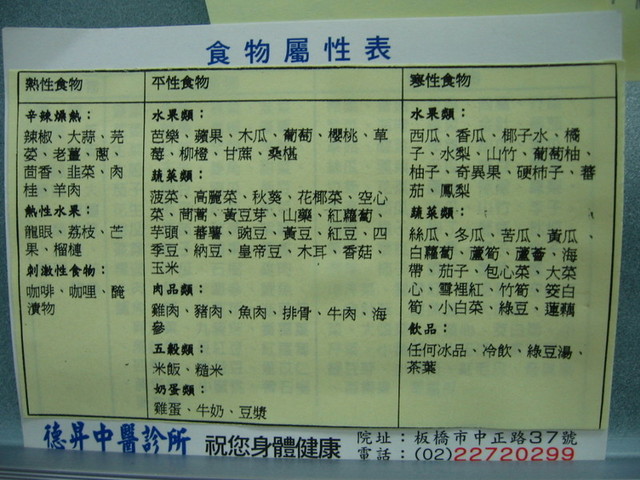 食物屬性表
熱性食物
辛辣燥熱：
辣椒、大蒜、芫
荽、老薑、蔥、
茴香、韭菜、肉
桂、羊肉
熱性水果：
龍眼、荔枝、芒
果、榴槤
刺激性食物：
咖啡、咖哩、醃
漬物
平性食物
水果類：
芭樂、蘋果、木瓜、葡萄、櫻桃、草
莓、柳橙、甘蔗、桑椹
蔬菜類：
菠菜、高麗菜、秋葵、花椰菜、空心
菜、茼蒿、黃豆芽、山藥、紅蘿蔔、
芋頭、蕃薯、豌豆、黃豆、紅豆、四
季豆、納豆、皇帝豆、木耳、香菇、
玉米
肉品類：
雞肉、豬肉、魚肉、排骨、牛肉、海
參
五穀類：
米飯、糙米
奶蛋類：
雞蛋、牛奶、豆漿
寒性食物
水果類：
西瓜、香瓜、椰子水、橘
子、水梨、山竹、葡萄柚、
柚子、奇異果、硬柿子、蕃
茄、鳳梨
蔬菜類：
絲瓜、冬瓜、苦瓜、黃瓜、
白蘿蔔、蘆筍、蘆薈、海
帶、茄子、包心菜、大菜
心、雪裡紅、竹筍、筊白
筍、小白菜、綠豆、蓮藕
飲品：
任何冰品、冷飲、綠豆湯、
茶葉
德昇中醫診所 祝您身體健康
院址：板橋市中正路37號
電話：(02)22720299